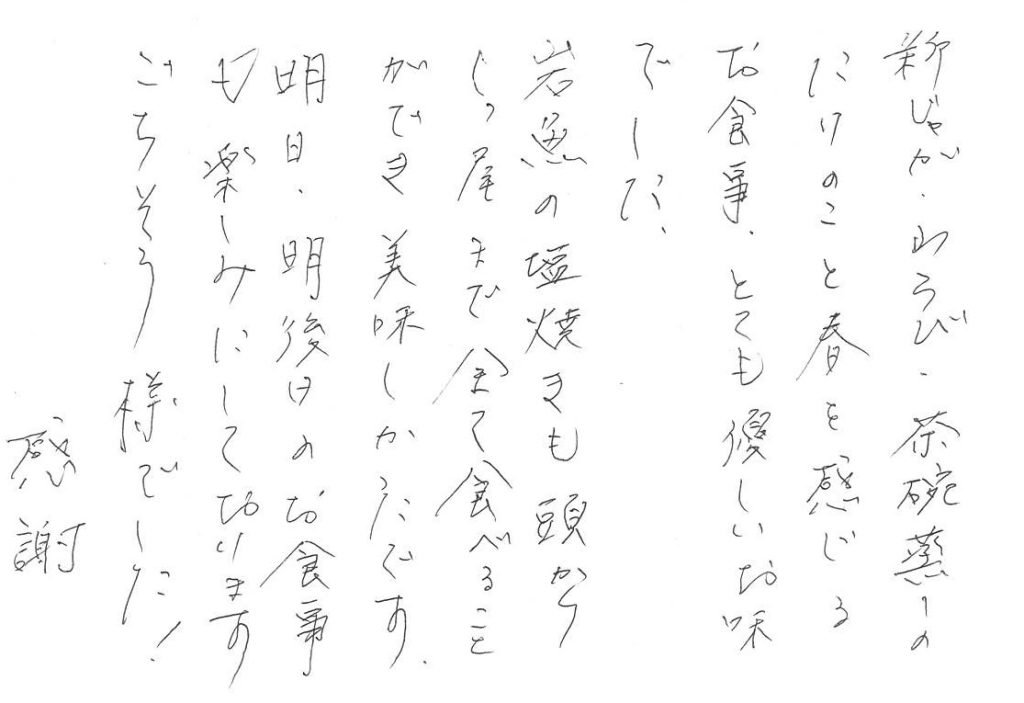 新じゃが・わらび・茶碗蒸しの
たけのこと春を感じる
お食事、とても優しいお味
でした、
岩魚の塩焼きも頭から
しっ尾まで全て食べること
ができ美味しかたです.
明日、明後日のお食事
も楽しみにして切ります
ごちそう様でした!
感謝